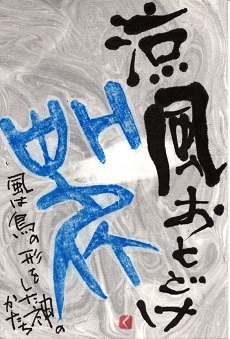 涼風おとどけ
風は鳥の形をした神の
かたち
く